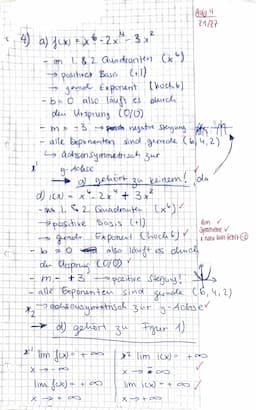 Aufg 4
21/27
4) a) f(x) = x⁶ - 2x⁴ - 3x²
- im 1. & 2 Quadranten (x⁶)
→ positiver Basis (+1)
→ gerade Exponent (hoch 6)
- b = 0 also läuft es durch
den Ursprung (0/0)
- m = -3 → negative Steigung
- alle Exponenten sind gerade (6, 4, 2)
↳ achsensymmetrisch zur
y-Achse
→ a) gehört zu keinem!
d) i(x) = x⁶ - 2x⁴ + 3x²
1 & 2 Quadranten (x⁶)
→ positive Basis (+1)
→ gerade Exponent (hoch 6)
- b = 0 also läuft es durch
der Ursprung (0/0)
- m = +3 → positive Steigung!
- alle Exponenten sind gerade (6, 4, 2)
→ achsensymmetrisch zur y-Achse
→ d) gehört zu Figur 1)
x¹ lim f(x) = +∞
x → -∞
lim f(x) = +∞
x → +∞
x² lim i(x) = +∞
x → -∞
lim i(x) = +∞
x → +∞